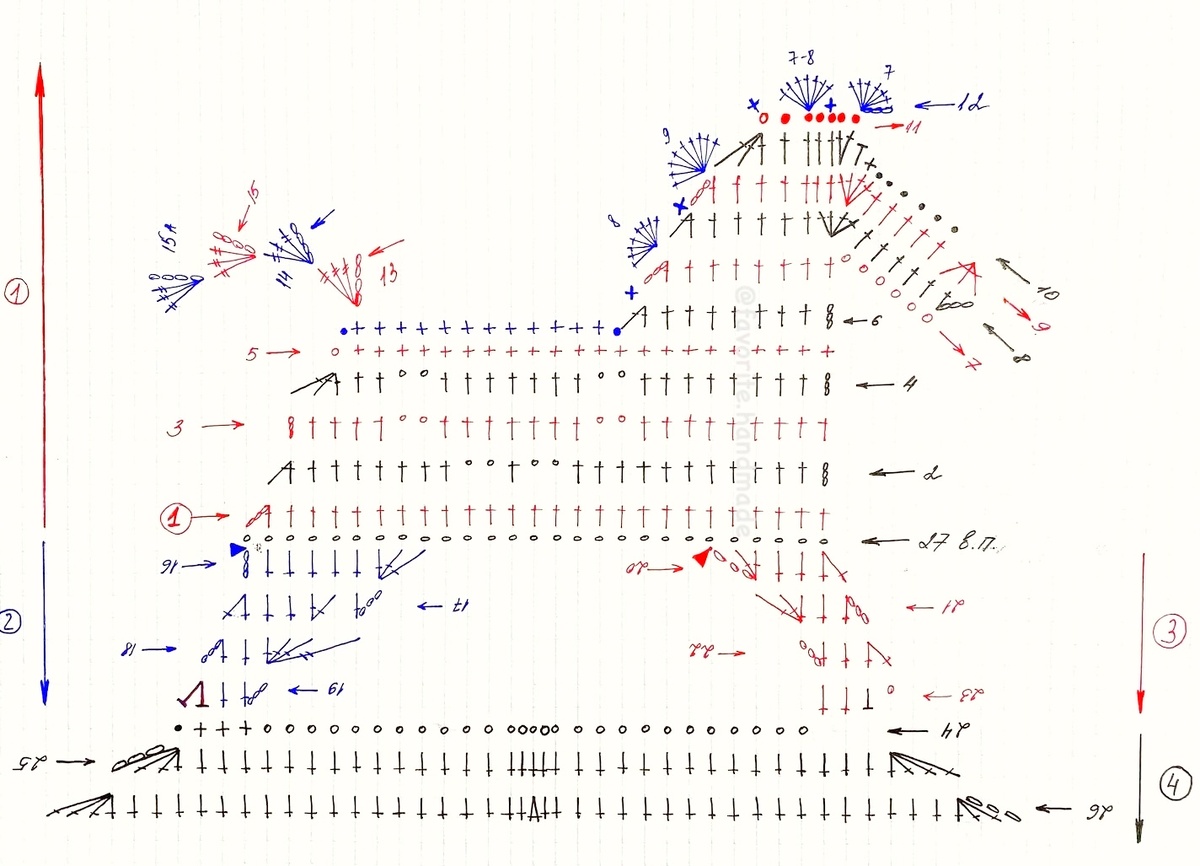 7-8
7
12
11
9
8
15
15A
14
13
10
9
8
7
6
5
4
3
2
1
27 в.п.
16
17
18
19
20
21
22
23
24
25
26
1
2
3
4
@favorite.handmade